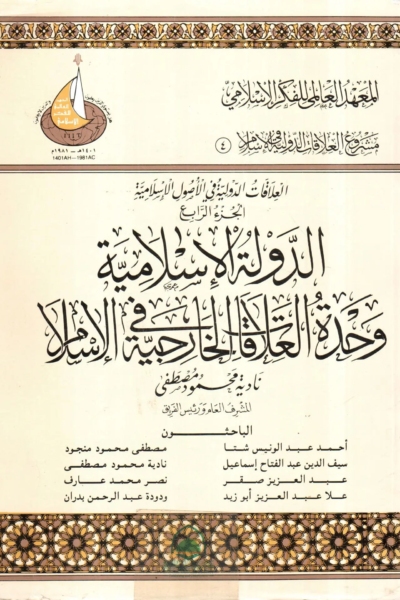 المعهد العالمي للفكر الإسلامي
١٤٠١هـ - ١٩٨١م
1401AH-1981AC
مشروع العلاقات الدولية في الإسلام ٤
العلاقات الدولية في الأصول الإسلامية
الجزء الرابع
الدولة الإسلامية
وحدة العلاقات الخارجية في الإسلام
نادية محمود مصطفى
المشرف العام ورئيس الفريق
الباحثون
أحمد عبد الونيس شتا
مصطفى محمود منجود
سيف الدين عبد الفتاح إسماعيل
نادية محمود مصطفى
عبد العزيز صقر
نصر محمد عارف
علا عبد العزيز أبو زيد
ودودة عبد الرحمن بدران